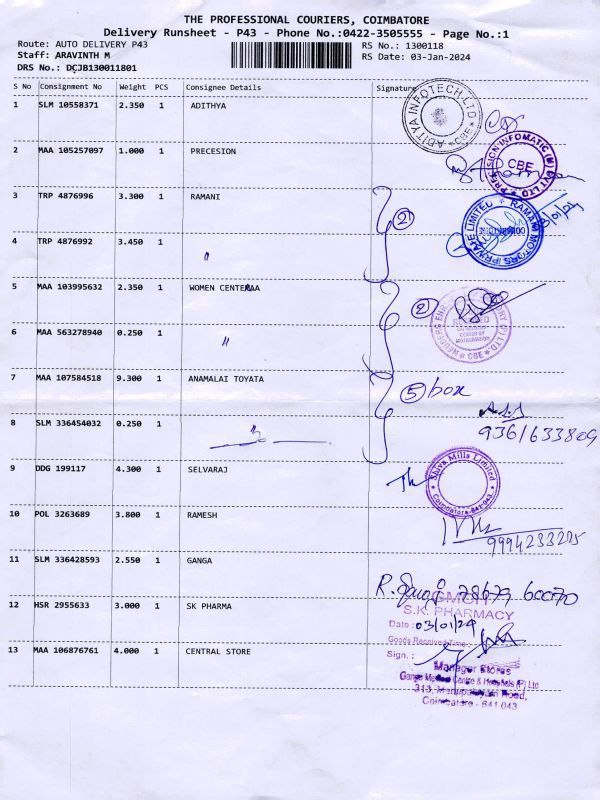 THE PROFESSIONAL COURIERS, COIMBATORE
Delivery Runsheet - P43 - Phone No.:0422-3505555 - Page No.:1
Route: AUTO DELIVERY P43 RS No.: 1300118
Staff: ARAVINTH M RS Date: 03-Jan-2024
DRS No.: DCJB130011801
S No Consignment No Weight PCS Consignee Details Signature
1 SLM 10558371 2.350 1 ADITHYA
ADITYA INFOTECH LTD CBE
2 MAA 105257097 1.000 1 PRECESION
CBE
3 TRP 4876996 3.300 1 RAMANI
2
RAMANI MOTORS PRIVATE LIMITED
COIMBATORE
4 TRP 4876992 3.450 1
"
5 MAA 103995632 2.350 1 WOMEN CENTERAA
2
CBE
6 MAA 563278940 0.250 1
"
7 MAA 107584518 9.300 1 ANAMALAI TOYATA
5 box
8 SLM 336454032 0.250 1
9361633809
9 DDG 199117 4.300 1 SELVARAJ
Shiva Mills Limited
Coimbatore-641 043
10 POL 3263689 3.800 1 RAMESH
9994233275
11 SLM 336428593 2.550 1 GANGA
78679 60070
12 HSR 2955633 3.000 1 SK PHARMA
GMCH
S.K. PHARMACY
Date : 03/01/24
Goods Received Time :
Sign. :
13 MAA 106876761 4.000 1 CENTRAL STORE
Manager Stores
Ganga Medical Centre & Hospitals (P) Ltd
313, Mettupalayam Road,
Coimbatore - 641 043